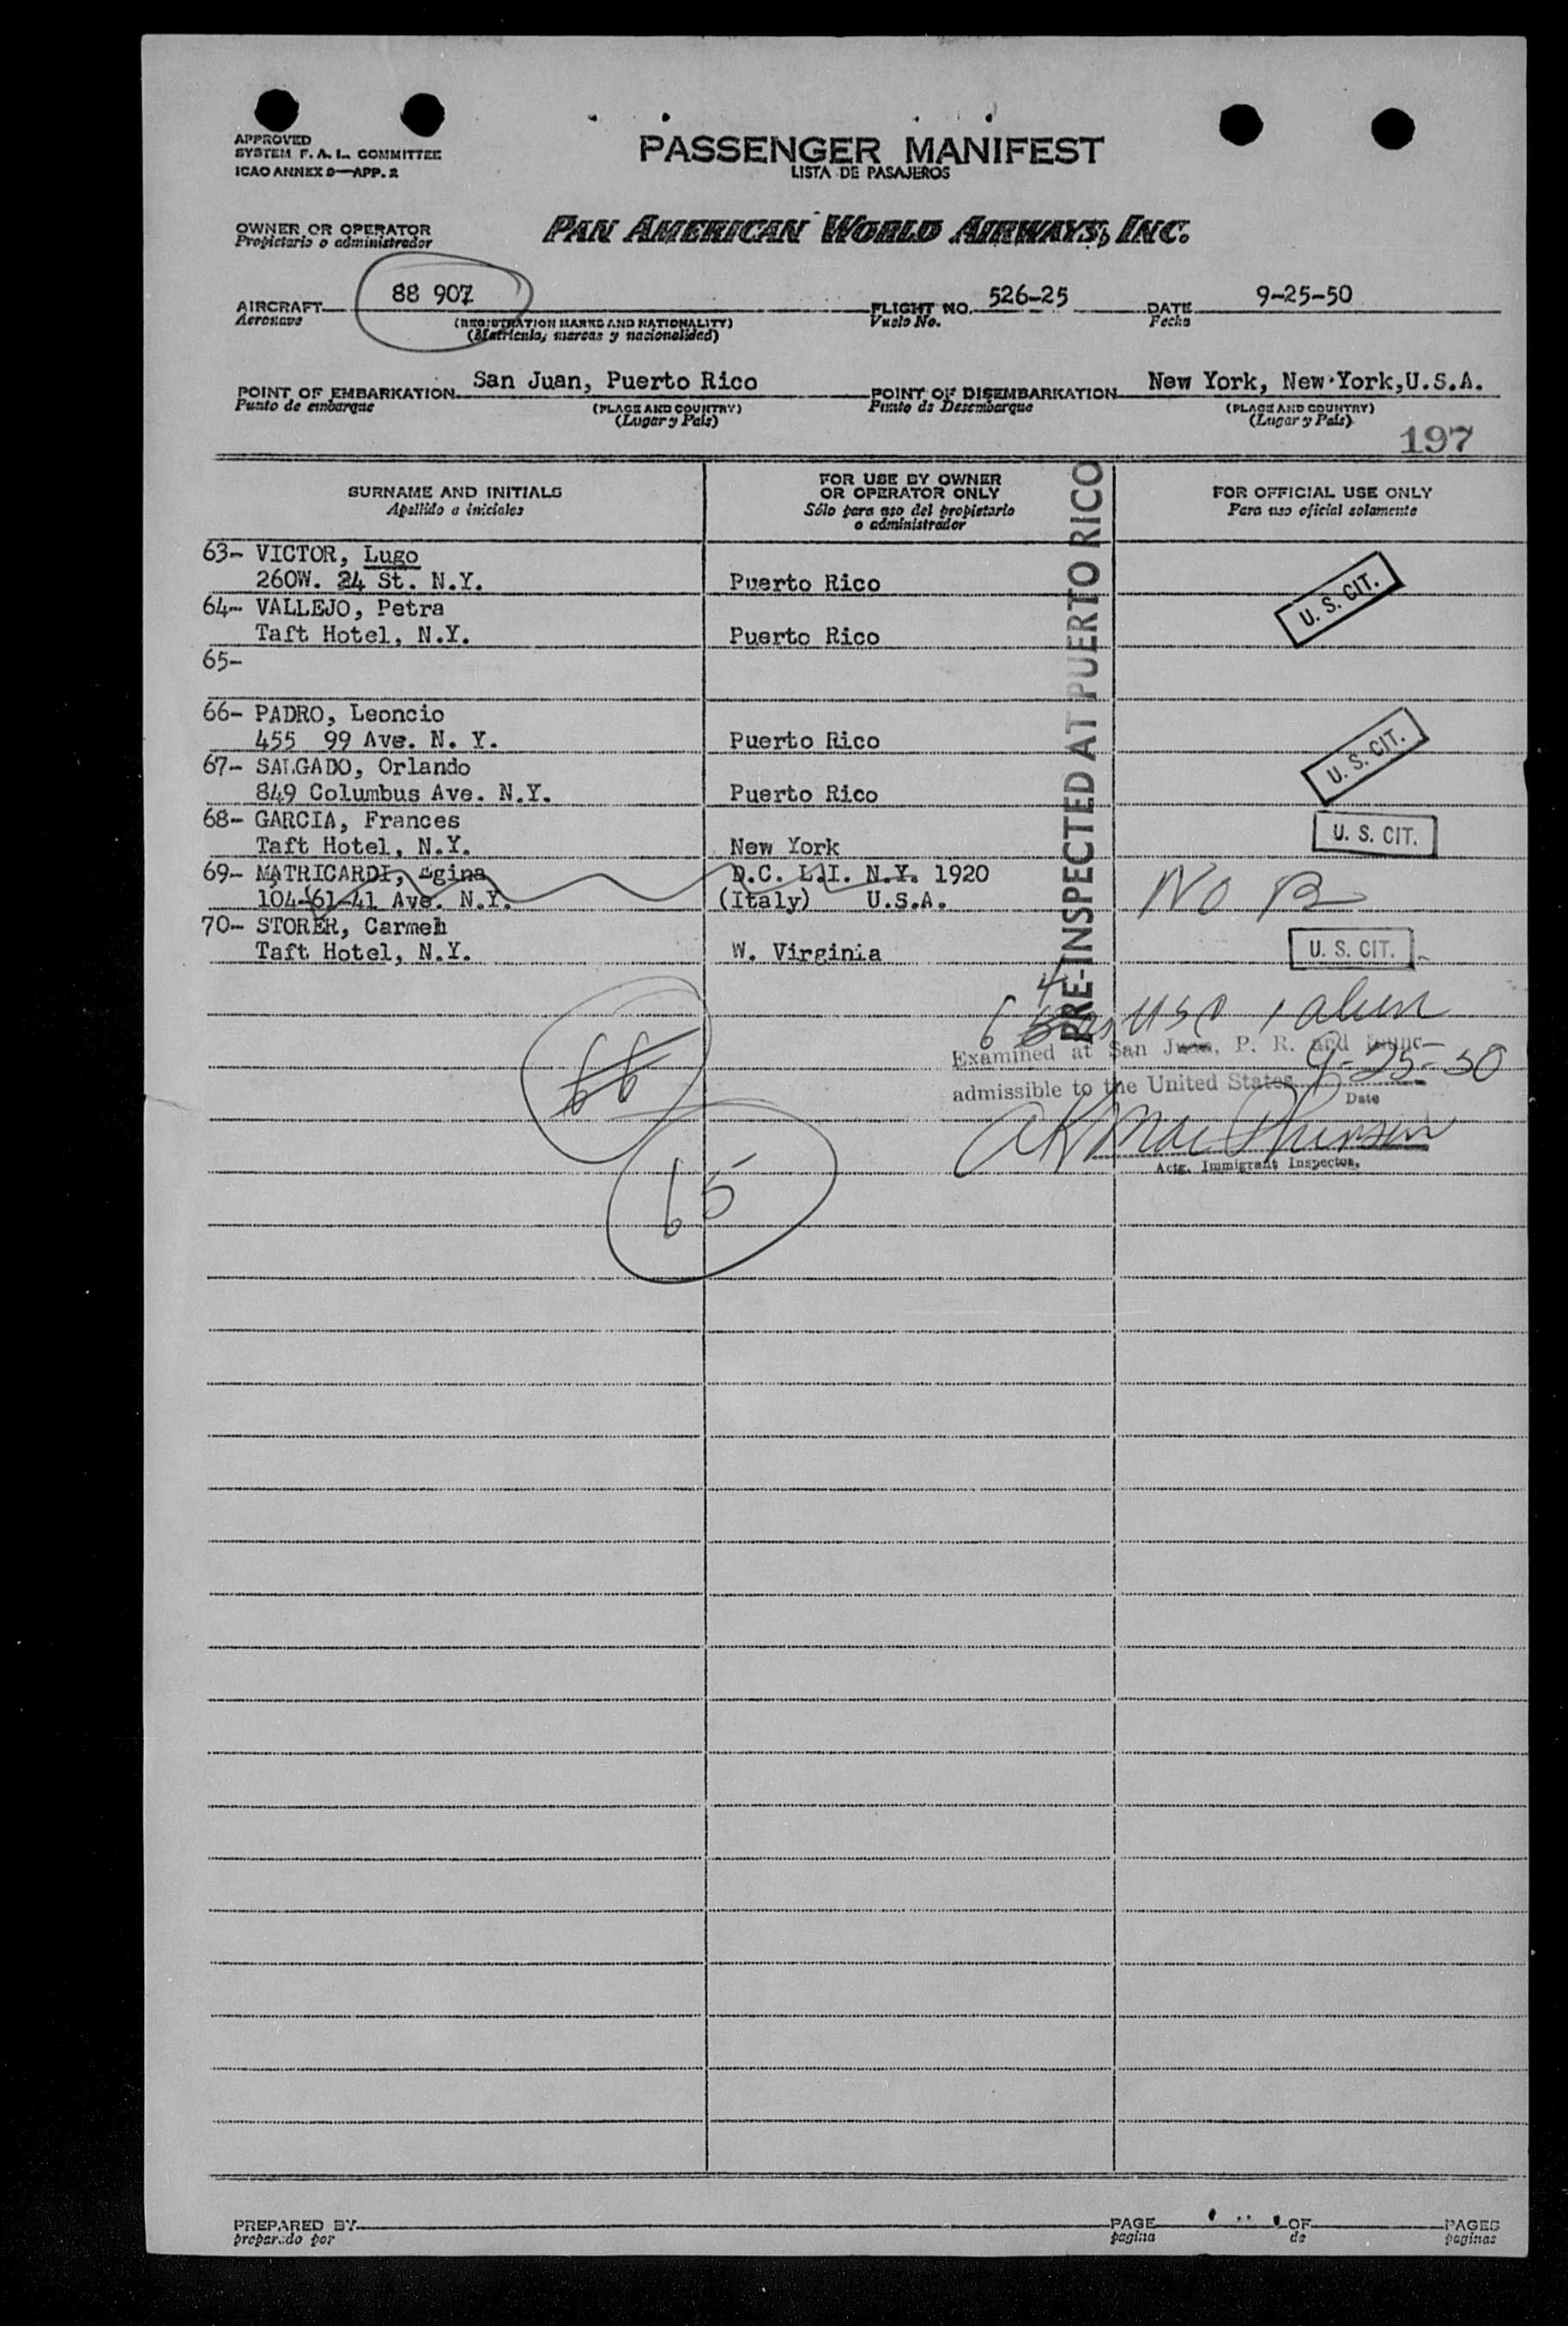 APPROVED
SYSTEM F. A. L. COMMITTEE
ICAO ANNEX 9—APP. 2
PASSENGER MANIFEST
LISTA DE PASAJEROS
OWNER OR OPERATOR
Propietario o administrador
PAN AMERICAN WORLD AIRWAYS, INC.
AIRCRAFT 88 907 FLIGHT NO. 526-25 DATE 9-25-50
Aeronave (REGISTRATION MARKS AND NATIONALITY) Vuelo No. Fecha
(Matrícula, marcas y nacionalidad)
POINT OF EMBARKATION San Juan, Puerto Rico POINT OF DISEMBARKATION New York, New York, U.S.A.
Punto de embarque (PLACE AND COUNTRY) Punto de Desembarque (PLACE AND COUNTRY)
(Lugar y País) (Lugar y País)
197
SURNAME AND INITIALS FOR USE BY OWNER OR OPERATOR ONLY FOR OFFICIAL USE ONLY
Apellido a iniciales Sólo para uso del propietario o administrador Para uso oficial solamente
PRE-INSPECTED AT PUERTO RICO
63- VICTOR, Lugo
260W. 24 St. N.Y. Puerto Rico U. S. CIT.
64- VALLEJO, Petra
Taft Hotel, N.Y. Puerto Rico
65-
66- PADRO, Leoncio
455 99 Ave. N. Y. Puerto Rico U. S. CIT.
67- SALGADO, Orlando
849 Columbus Ave. N.Y. Puerto Rico
68- GARCIA, Frances U. S. CIT.
Taft Hotel, N.Y. New York
69- MATRICARDI, Egina D.C. L.I. N.Y. 1920
104-61-41 Ave. N.Y. (Italy) U.S.A. No
70- STORER, Carmen
Taft Hotel, N.Y. W. Virginia U. S. CIT.
6 4 USC 1 alien
66
Examined at San Juan, P. R. and found
admissible to the United States 9-25-50
Date
Actg. Immigrant Inspector.
65
PREPARED BY PAGE OF PAGES
preparado por pagina de paginas